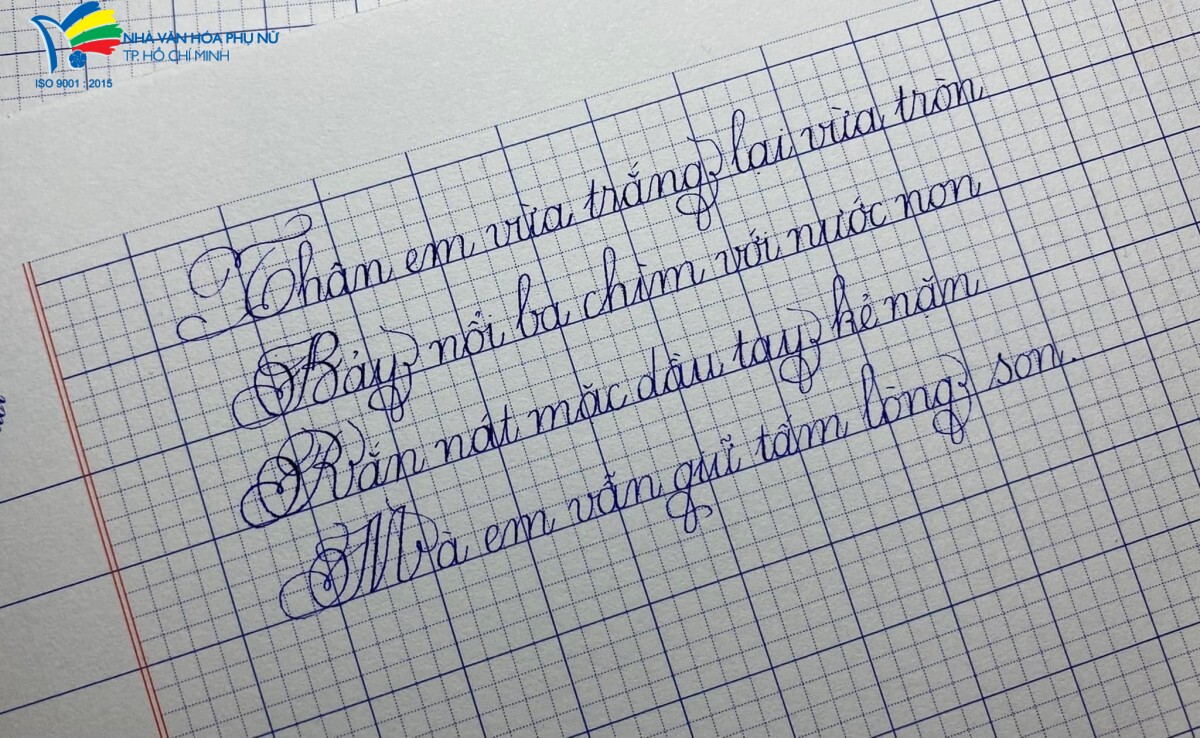 NHÀ VĂN HÓA PHỤ NỮ
TP. HỒ CHÍ MINH
ISO 9001 : 2015
Thân em vừa trắng lại vừa tròn
Bảy nổi ba chìm với nước non
Rắn nát mặc dầu tay kẻ nặn
Mà em vẫn giữ tấm lòng son.